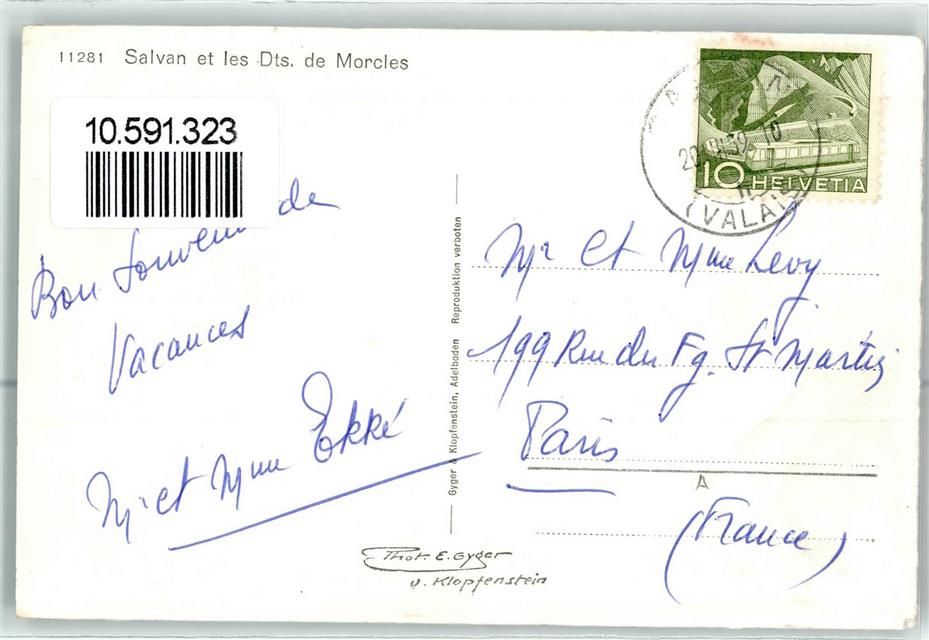 11281 Salvan et les Dts. de Morcles
10.591.323
10 HELVETIA
(VALAIS)
Bon Souvenir de
Vacances
Mr et Mme Ekké
Gyger & Klopfenstein, Adelboden Reproduktion verboten
Mr et Mme Levy
199 Rue du Fg. St Martin
Paris
A
(France)
Phot. E. Gyger
u. Klopfenstein